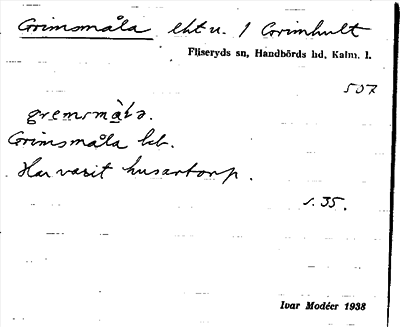 Grimsmåla eht u. / Grimhult
Fliseryds sn, Handbörds hd, Kalm. l.
507
gremsmɑ̀lɑ.
Grimsmåla kb.
Har varit husartorp.
s. 35.
Ivar Modéer 1938